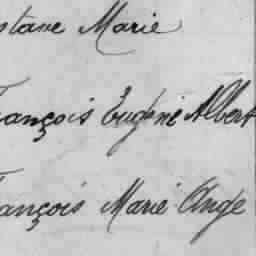 stave Marie
rançois Eugène Albert
rançois Marie Ange